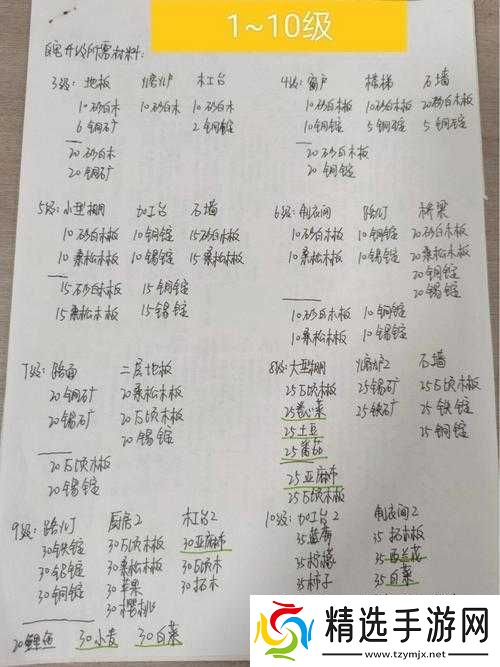 1~10级
升级所需材料:
3级: 地板 熔炉 木工台
10砂白木 10砂白木 10砂白木
6铜矿 2铜锭
20砂白木
20铜矿
4级: 窗户 楼梯 石墙
10砂白木板 10砂白木板 20砂白木板
10铜锭 5铜锭 5铜锭
20砂白木板
20铜锭
5级: 小型棚 加工台 石墙
10砂白木板 10铜锭 15砂白木板
10桑松木板 10锡锭 15桑松木板
15砂白木板 15铜锭
15桑松木板 15锡锭
6级: 制衣间 路灯 桥梁
10砂白木板 10铜锭 20砂白木板
10桑松木板 10锡锭 20桑松木板
20铜锭
20锡锭
10砂白木板 10铜锭
10桑松木板 10锡锭
7级: 路面 二层地板
20铜矿 20桑松木板
20锡矿 20瓦坎木板
20锡锭
20瓦坎木板
20锡锭
8级: 大型棚 熔炉2 石墙
25瓦坎木板 25锡矿 25瓦坎木板
25卷心菜 25铁矿 25铁锭
25土豆 25铜锭
25番茄
25亚麻布
25瓦坎木板
9级: 路灯 厨房2 木工台2
30铁锭 30瓦坎木板 30亚麻布
30铝锭 30桑松木板 30瓦坎木
30铜锭 30苹果 30拓木
30樱桃
20鲤鱼 30小麦 30白菜
10级: 加工台2 制衣间2
35蓝莓 35拓木板
35柠檬 35西兰花
35柿子 35白菜
精选手游网
www.tzymjx.net